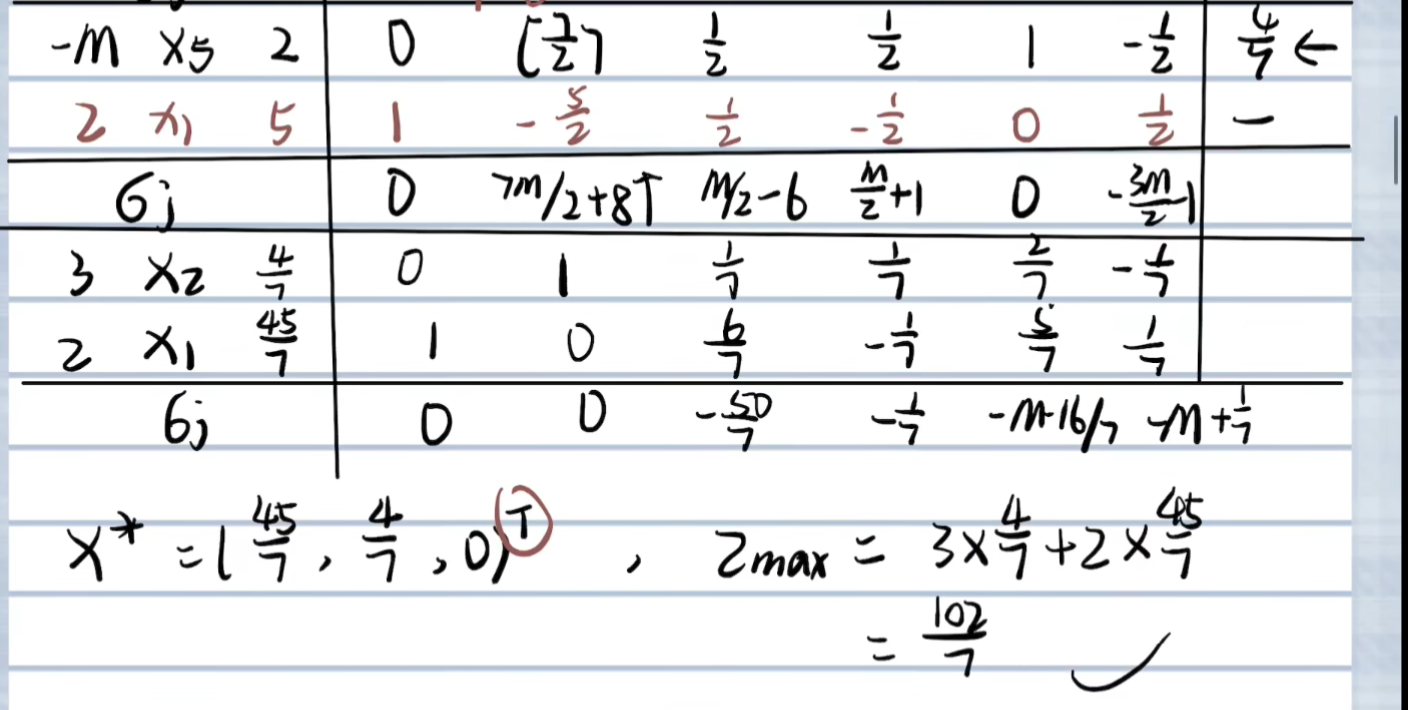 -M x5 2 0 [7/2] 1/2 1/2 1 -1/2 4/7 ←
2 x1 5 1 -5/2 1/2 -1/2 0 1/2 —
6j 0 7M/2+8↑ M/2-6 M/2+1 0 -3M/2-1
3 x2 4/7 0 1 1/7 1/7 2/7 -1/7
2 x1 45/7 1 0 6/7 -1/7 5/7 1/7
6j 0 0 -50/7 -1/7 -M-16/7 -M+1/7
X* =(45/7, 4/7, 0)T , Zmax = 3×4/7+2×45/7
= 102/7 ✓